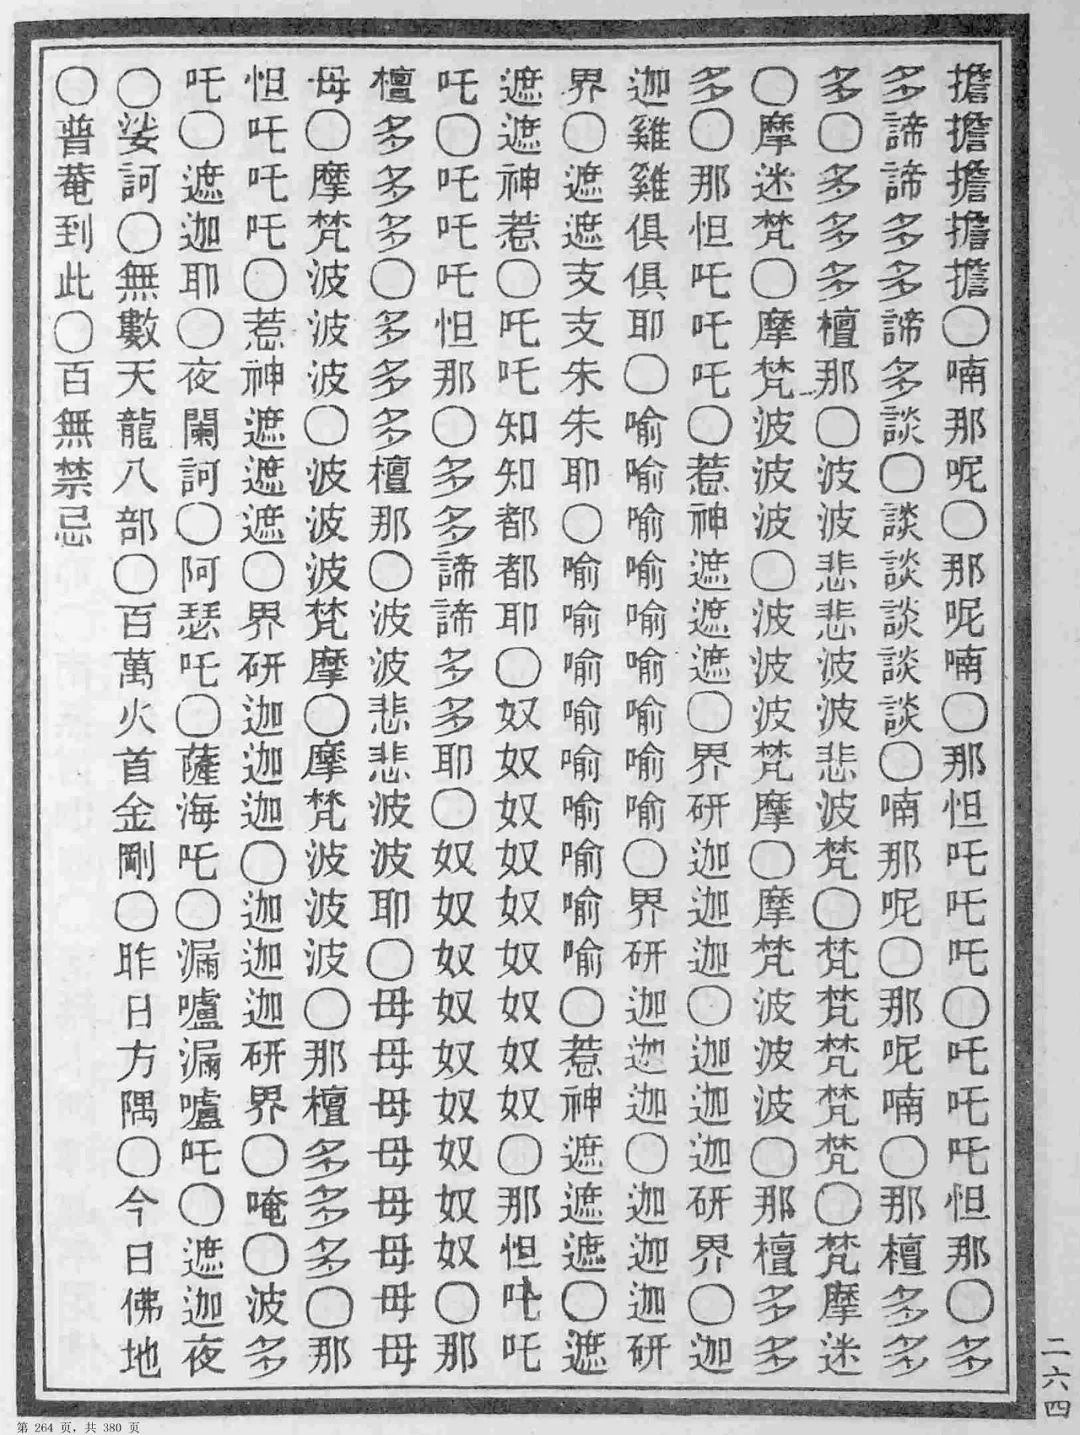 擔擔擔擔擔〇喃那呢〇那呢喃〇那怛吒吒吒〇吒吒吒怛那〇多
多諦諦多多諦多談〇談談談談談〇喃那呢〇那呢喃〇那檀多多
多〇多多多檀那〇波波悲悲波波悲波梵〇梵梵梵梵梵〇梵摩迷
〇摩迷梵〇摩梵波波波〇波波波梵摩〇摩梵波波波〇那檀多多
多〇那怛吒吒吒〇惹神遮遮遮〇界研迦迦迦〇迦迦迦研界〇迦
迦雞雞俱俱耶〇喻喻喻喻喻喻喻喻喻〇界研迦迦迦〇迦迦迦研
界〇遮遮支支朱朱耶〇喻喻喻喻喻喻喻喻喻〇惹神遮遮遮〇遮
遮遮神惹〇吒吒知知都都耶〇奴奴奴奴奴奴奴奴奴〇那怛吒吒
吒〇吒吒吒怛那〇多多諦諦多多耶〇奴奴奴奴奴奴奴奴奴〇那
檀多多多〇多多多檀那〇波波悲悲波波耶〇母母母母母母母母
母〇摩梵波波波〇波波波梵摩〇摩梵波波波〇那檀多多多〇那
怛吒吒吒〇惹神遮遮遮〇界研迦迦迦〇迦迦迦研界〇唵〇波多
吒〇遮迦耶〇夜闌訶〇阿瑟吒〇薩海吒〇漏嚧漏嚧吒〇遮迦夜
〇娑訶〇無數天龍八部〇百萬火首金剛〇昨日方隅〇今日佛地
〇普菴到此〇百無禁忌
二六四
第 264 页，共 380 页